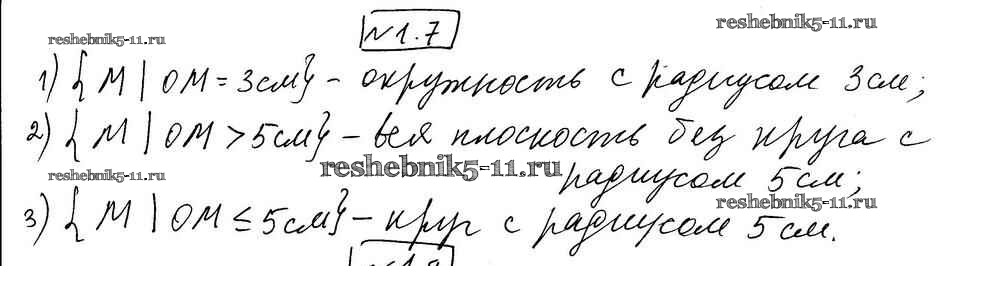 №1.7
reshebnik5-11.ru reshebnik5-11.ru
1) { M | OM = 3см} - окружность с радиусом 3см;
2) { M | OM > 5см} - вся плоскость без круга с
reshebnik5-11.ru
радиусом 5см;
reshebnik5-11.ru reshebnik5-11.ru
3) { M | OM ≤ 5см} - круг с радиусом 5см.